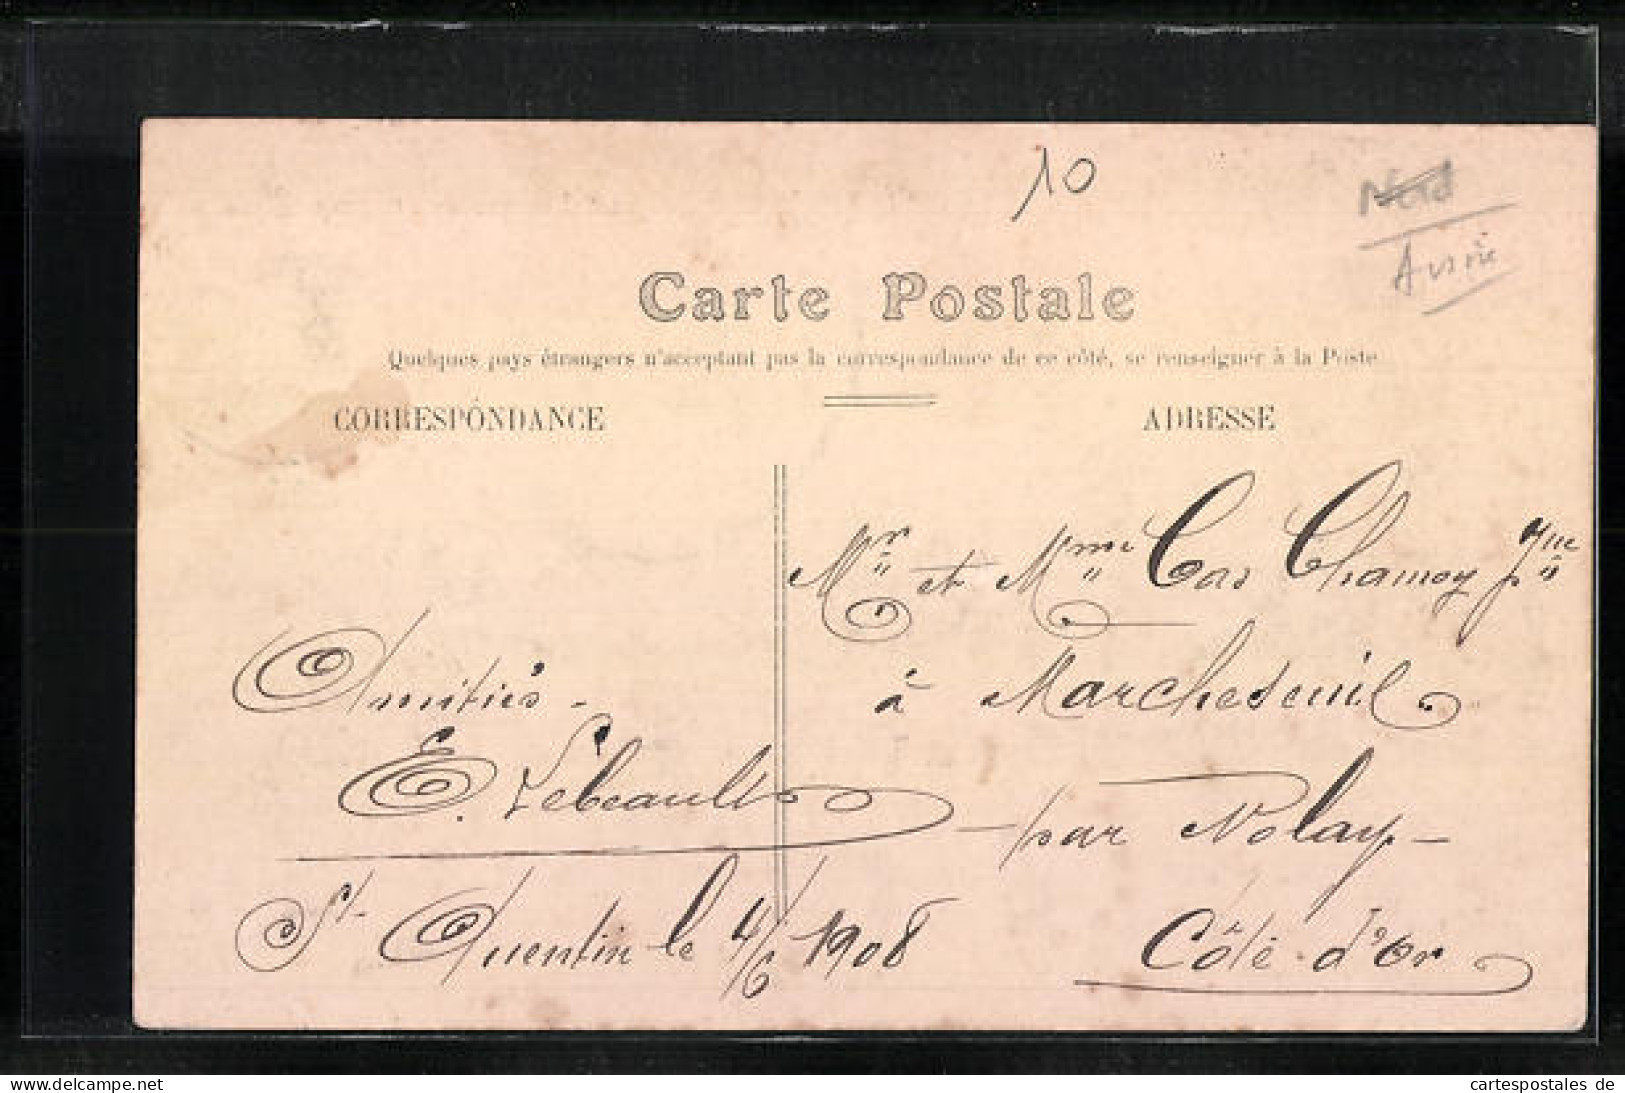 10
Nord
Carte Postale
Quelques pays étrangers n'acceptant pas la correspondance de ce côté, se renseigner à la Poste
CORRESPONDANCE
ADRESSE
Mr et Mme Cas Chamoy
à Marcheseuil
par Nolay
Côte-d'Or
Amitiés
E. Lebeault
St Quentin le 4/6 1908
www.delcampe.net
cartespostales_de